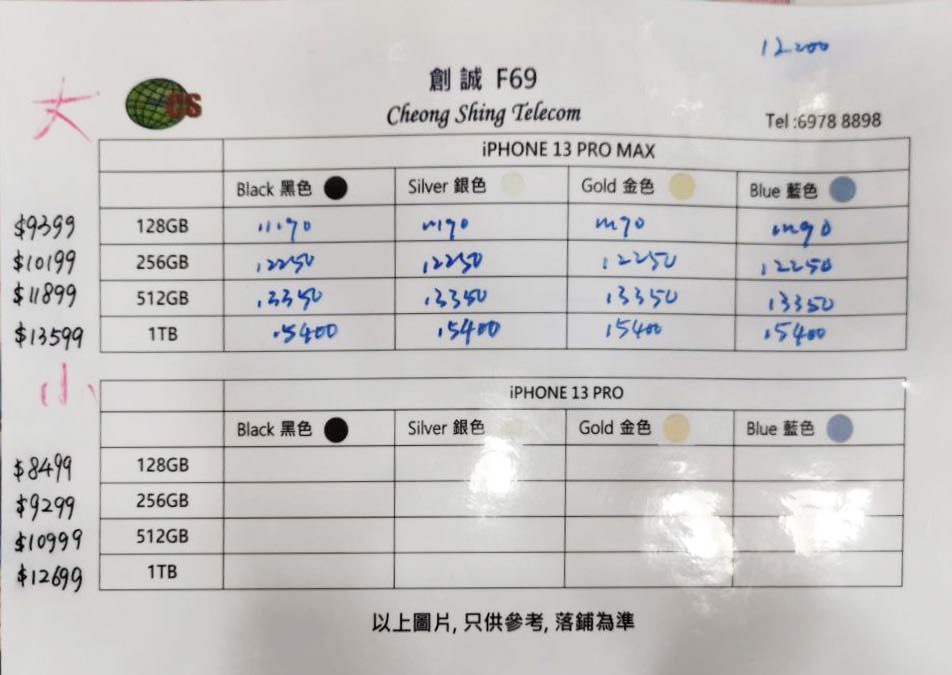 12200
創誠 F69
大 CS
Cheong Shing Telecom
Tel :6978 8898
iPHONE 13 PRO MAX
Black 黑色 Silver 銀色 Gold 金色 Blue 藍色
$9399 128GB
$10199 256GB 12250 12250 12250 12250
$11899 512GB 13350 13350 13350 13350
$13599 1TB 15400 15400 15400 15400
小
iPHONE 13 PRO
Black 黑色 Silver 銀色 Gold 金色 Blue 藍色
$8499 128GB
$9299 256GB
$10999 512GB
$12699 1TB
以上圖片, 只供參考, 落鋪為準